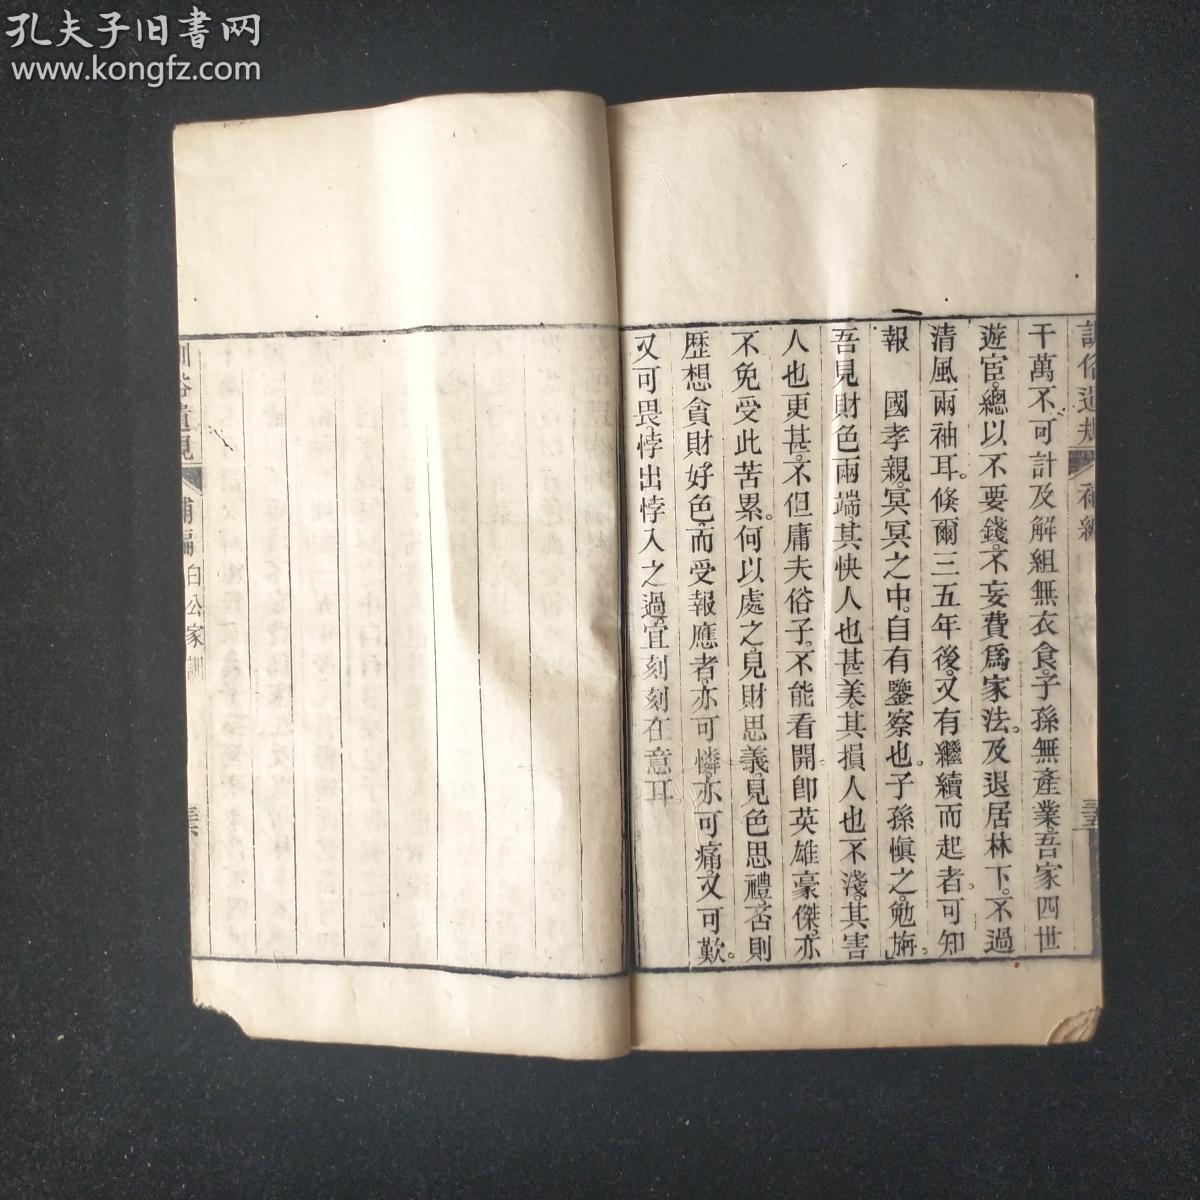 孔夫子旧书网
www.kongfz.com
訓俗遺規
補編
三五
千萬不可計及解組無衣食子孫無產業吾家四世
遊宦。總以不要錢。不妄費爲家法。及退居林下。不過
清風兩袖耳。倐爾三五年後。又有繼續而起者。可知
報　國孝親。冥冥之中。自有鑒察也。子孫愼之。勉旃。
吾見財色兩端其快人也甚美。其損人也不淺。其害
人也更甚。不但庸夫俗子。不能看開。卽英雄豪傑。亦
不免受此苦累。何以處之。見財思義。見色思禮。否則
歷想貪財好色。而受報應者。亦可憐。亦可痛。又可歎。
又可畏。悖出悖入之過。宜刻刻在意耳
訓俗遺規
補編
白公家訓
三六